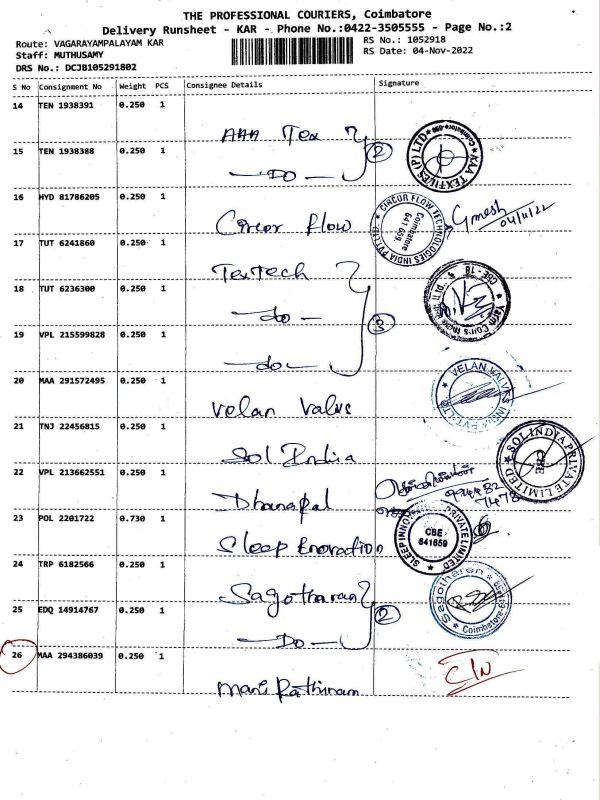 THE PROFESSIONAL COURIERS, Coimbatore
Delivery Runsheet - KAR - Phone No.:0422-3505555 - Page No.:2
Route: VAGARAYAMPALAYAM KAR
RS No.: 1052918
Staff: MUTHUSAMY
RS Date: 04-Nov-2022
DRS No.: DCJB105291802
S No Consignment No Weight PCS Consignee Details Signature
14 TEN 1938391 0.250 1
AAA Tex
KAA TEXTILES (P) LTD
15 TEN 1938388 0.250 1
-Do-
2
16 HYD 81786205 0.250 1
Circor Flow
CIRCOR FLOW TECHNOLOGIES INDIA PVT LTD
Coimbatore
641 659.
04/11/22
17 TUT 6241860 0.250 1
TexTech
18 TUT 6236300 0.250 1
-do-
3
CBE-18
19 VPL 215599828 0.250 1
-do-
20 MAA 291572495 0.250 1
Velan Valve
VELAN VALVES INDIA PVT LTD
21 TNJ 22456815 0.250 1
Sol India
SOL INDIA PRIVATE LIMITED
CBE
22 VPL 213662551 0.250 1
Dhanapal
23 POL 2201722 0.730 1
Sleep Enovation
PRIVATE LIMITED
CBE
641659
24 TRP 6182566 0.250 1
Sagotharan
Sagotharen
Coimbatore
25 EDQ 14914767 0.250 1
-Do-
2
26 MAA 294386039 0.250 1
Mani Rathinam